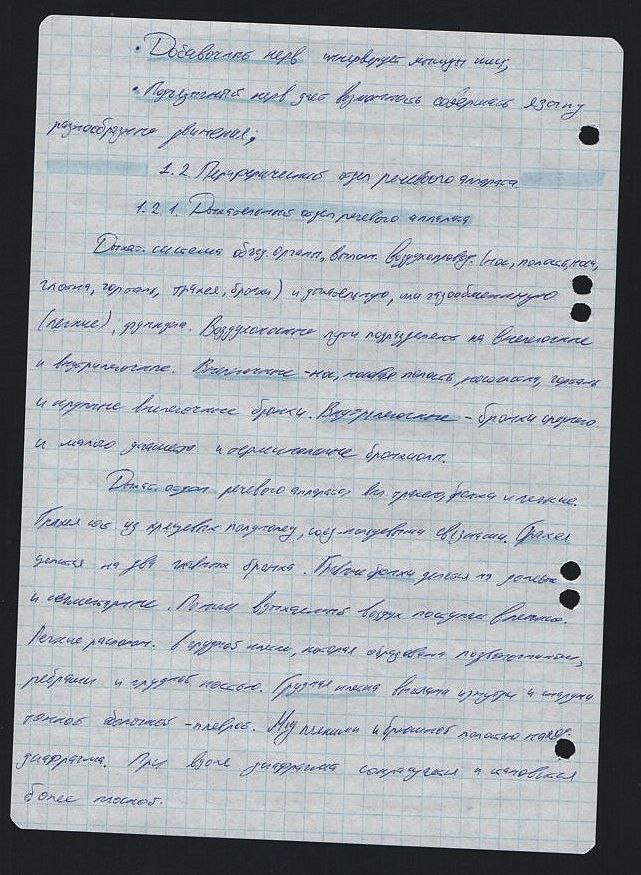 • Добавочный нерв иннервирует мышцы шеи;
• Подъязычный нерв дает возможность совершать языку
разнообразные движения;
1.2. Периферический отдел речевого аппарата
1.2.1. Дыхательный отдел речевого аппарата
Дыхат. система объед. органы, выполн. воздухопровод. (нос, полость носа,
глотка, гортань, трахея, бронхи) и дыхательную, или газообменную
(легкие), функции. Воздухоносные пути подразделяют на внелегочные
и внутрилегочные. Внелегочные - нос, носовая полость, гортань
и крупные внелегочные бронхи. Внутрилегочные - бронхи среднего
и малого и терминальные бронхиолы.
Дыхат. отдел речевого аппарата вкл. трахею, бронхи и легкие.
Трахея из хрящевых полуколец, соед. связками. Трахея
делится на два главных бронха. Главные бронхи делятся на долевые
и сегментарные. По ним вдыхаемый воздух поступает в легкие.
Легкие располож. в грудной клетке, которая образована позвоночником,
ребрами и грудной костью. Грудная клетка выстлана изнутри и снаружи
тонкой оболочкой - плеврой. М/у легкими и брюшной полостью наход.
диафрагма. При вдохе диафрагма сокращается и становится
более плоской.